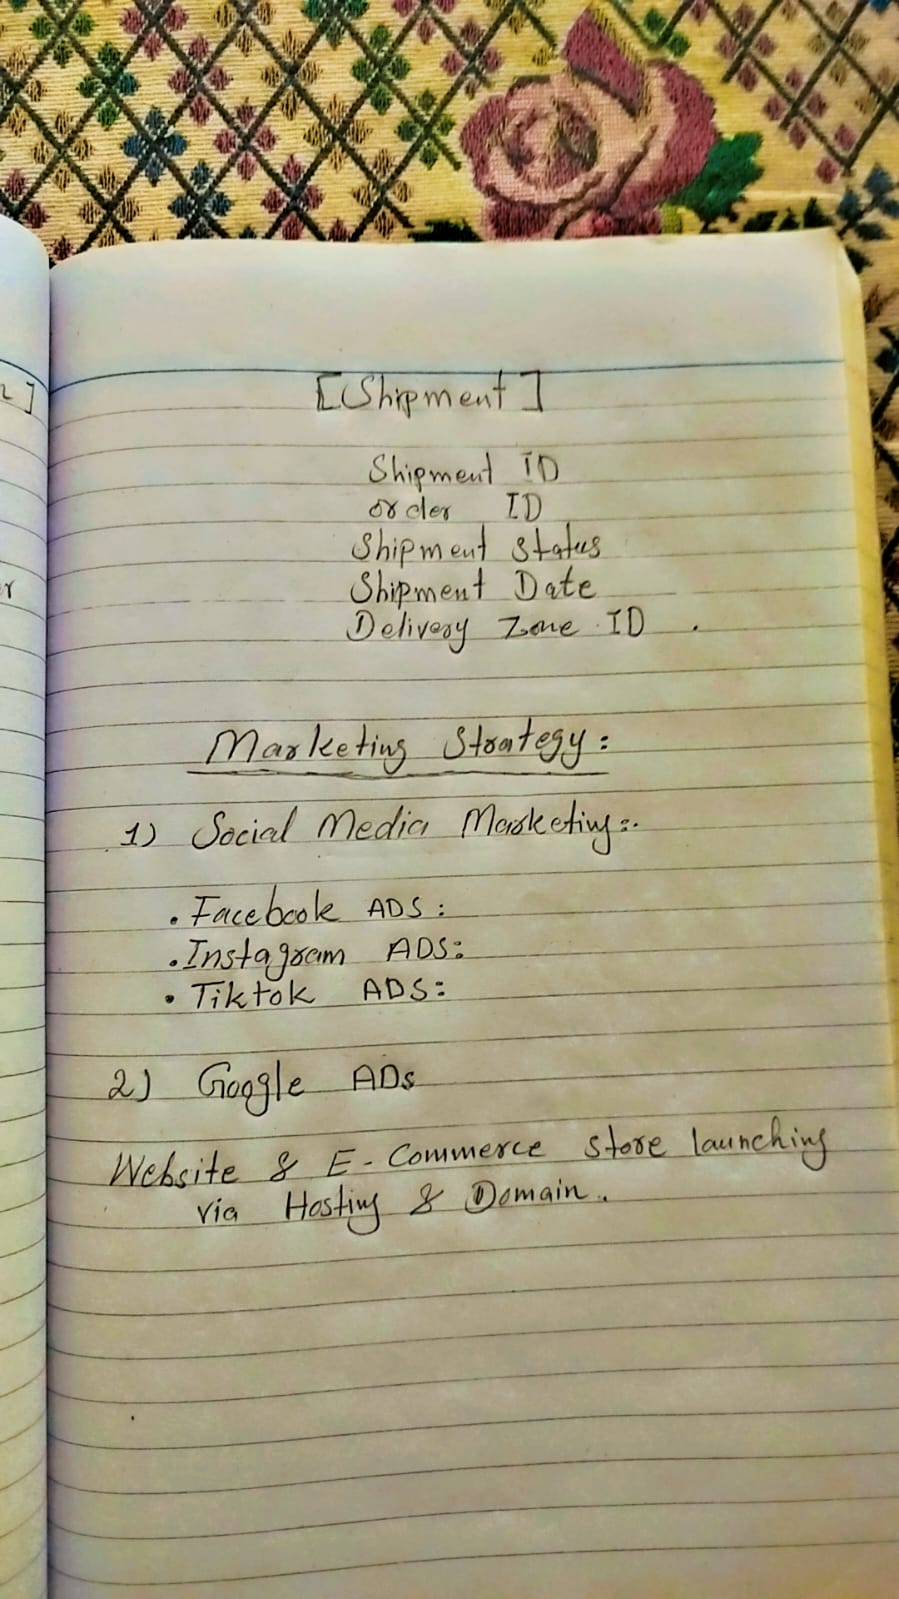 [Shipment]
Shipment ID
order ID
Shipment Status
Shipment Date
Delivery Zone ID .
Marketing Strategy:
1) Social Media Marketing:.
. Facebook ADS:
. Instagram ADS:
. Tiktok ADS:
2) Google ADs
Website & E-Commerce store launching
via Hosting & Domain.